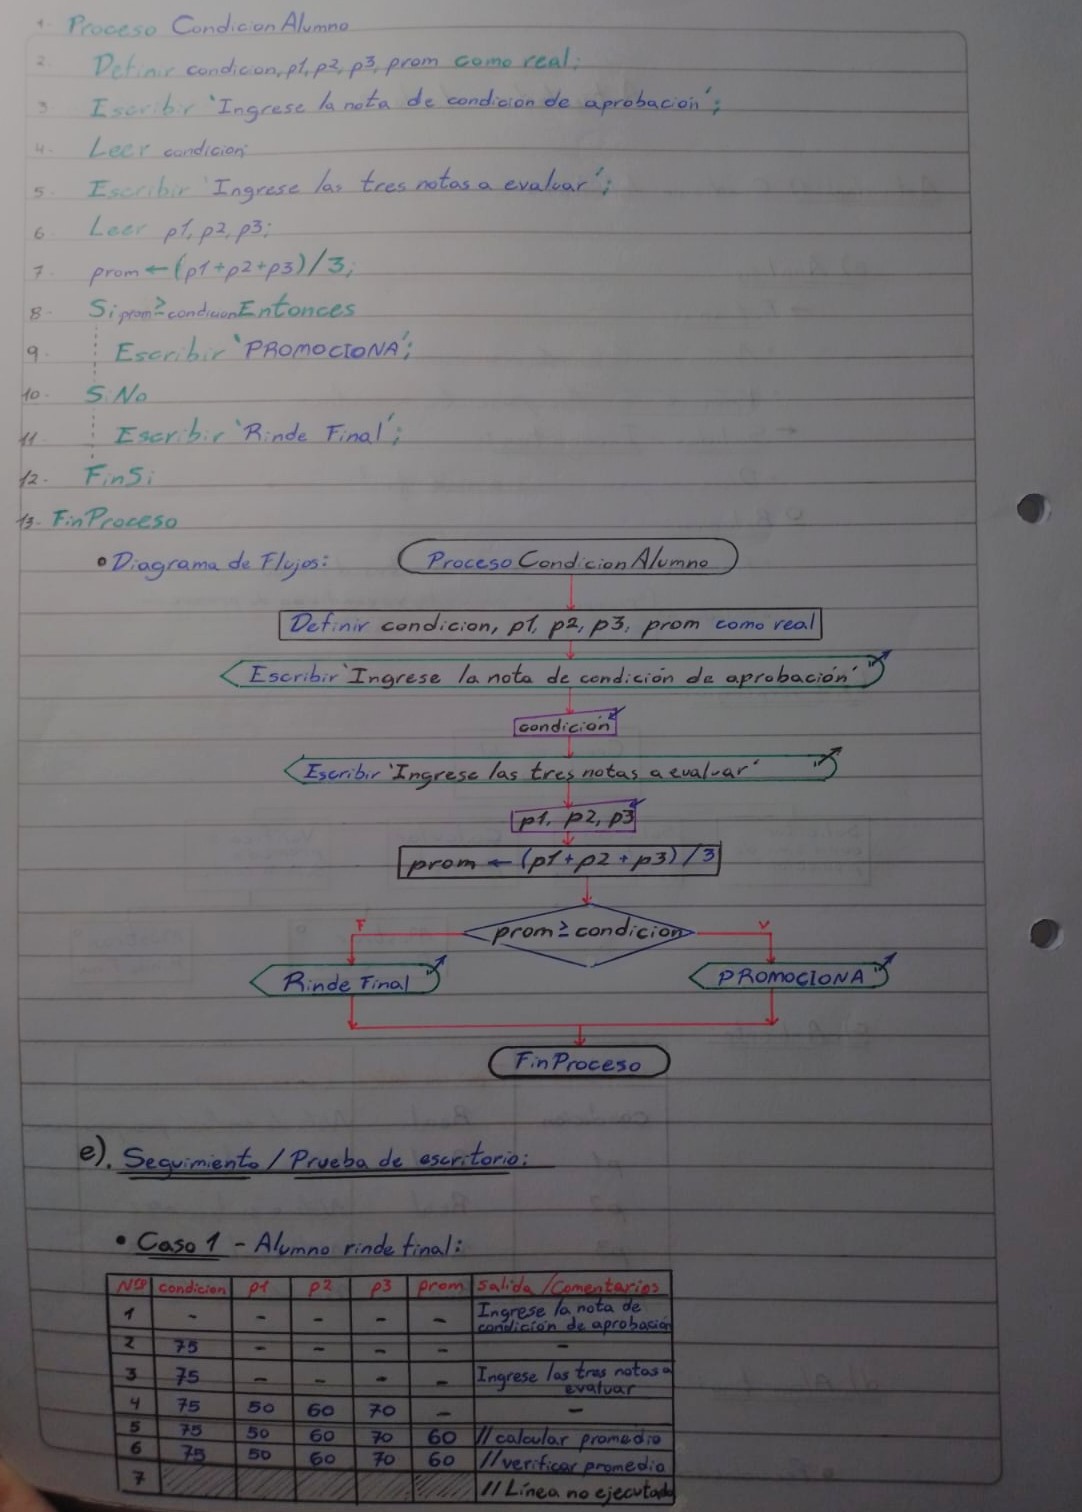 1. Proceso CondicionAlumno
2 Definir condicion, p1, p2, p3, prom como real;
3 Escribir 'Ingrese la nota de condicion de aprobacion';
4. Leer condicion;
5. Escribir 'Ingrese las tres notas a evaluar';
6 Leer p1, p2, p3;
7. prom ← (p1+p2+p3)/3;
8. Si prom ≥ condicion Entonces
9. Escribir 'PROMOCIONA';
10. SiNo
11. Escribir 'Rinde Final';
12. FinSi
13. FinProceso
• Diagrama de Flujos:
Proceso CondicionAlumno
Definir condicion, p1, p2, p3, prom como real
Escribir 'Ingrese la nota de condición de aprobación'
condición
Escribir 'Ingrese las tres notas a evaluar'
p1, p2, p3
prom ← (p1+p2+p3)/3
prom ≥ condicion
F V
Rinde Final PROMOCIONA
FinProceso
e). Seguimiento / Prueba de escritorio:
• Caso 1 - Alumno rinde final:
condicion p1 p2 p3 prom Salida /Comentarios
1 - - - - - Ingrese la nota de
condición de aprobación
2 75 - - - - -
3 75 - - - - Ingrese las tres notas a
evaluar
4 75 50 60 70 - -
5 75 50 60 70 60 //calcular promedio
6 75 50 60 70 60 //verificar promedio
7 //Línea no ejecutada